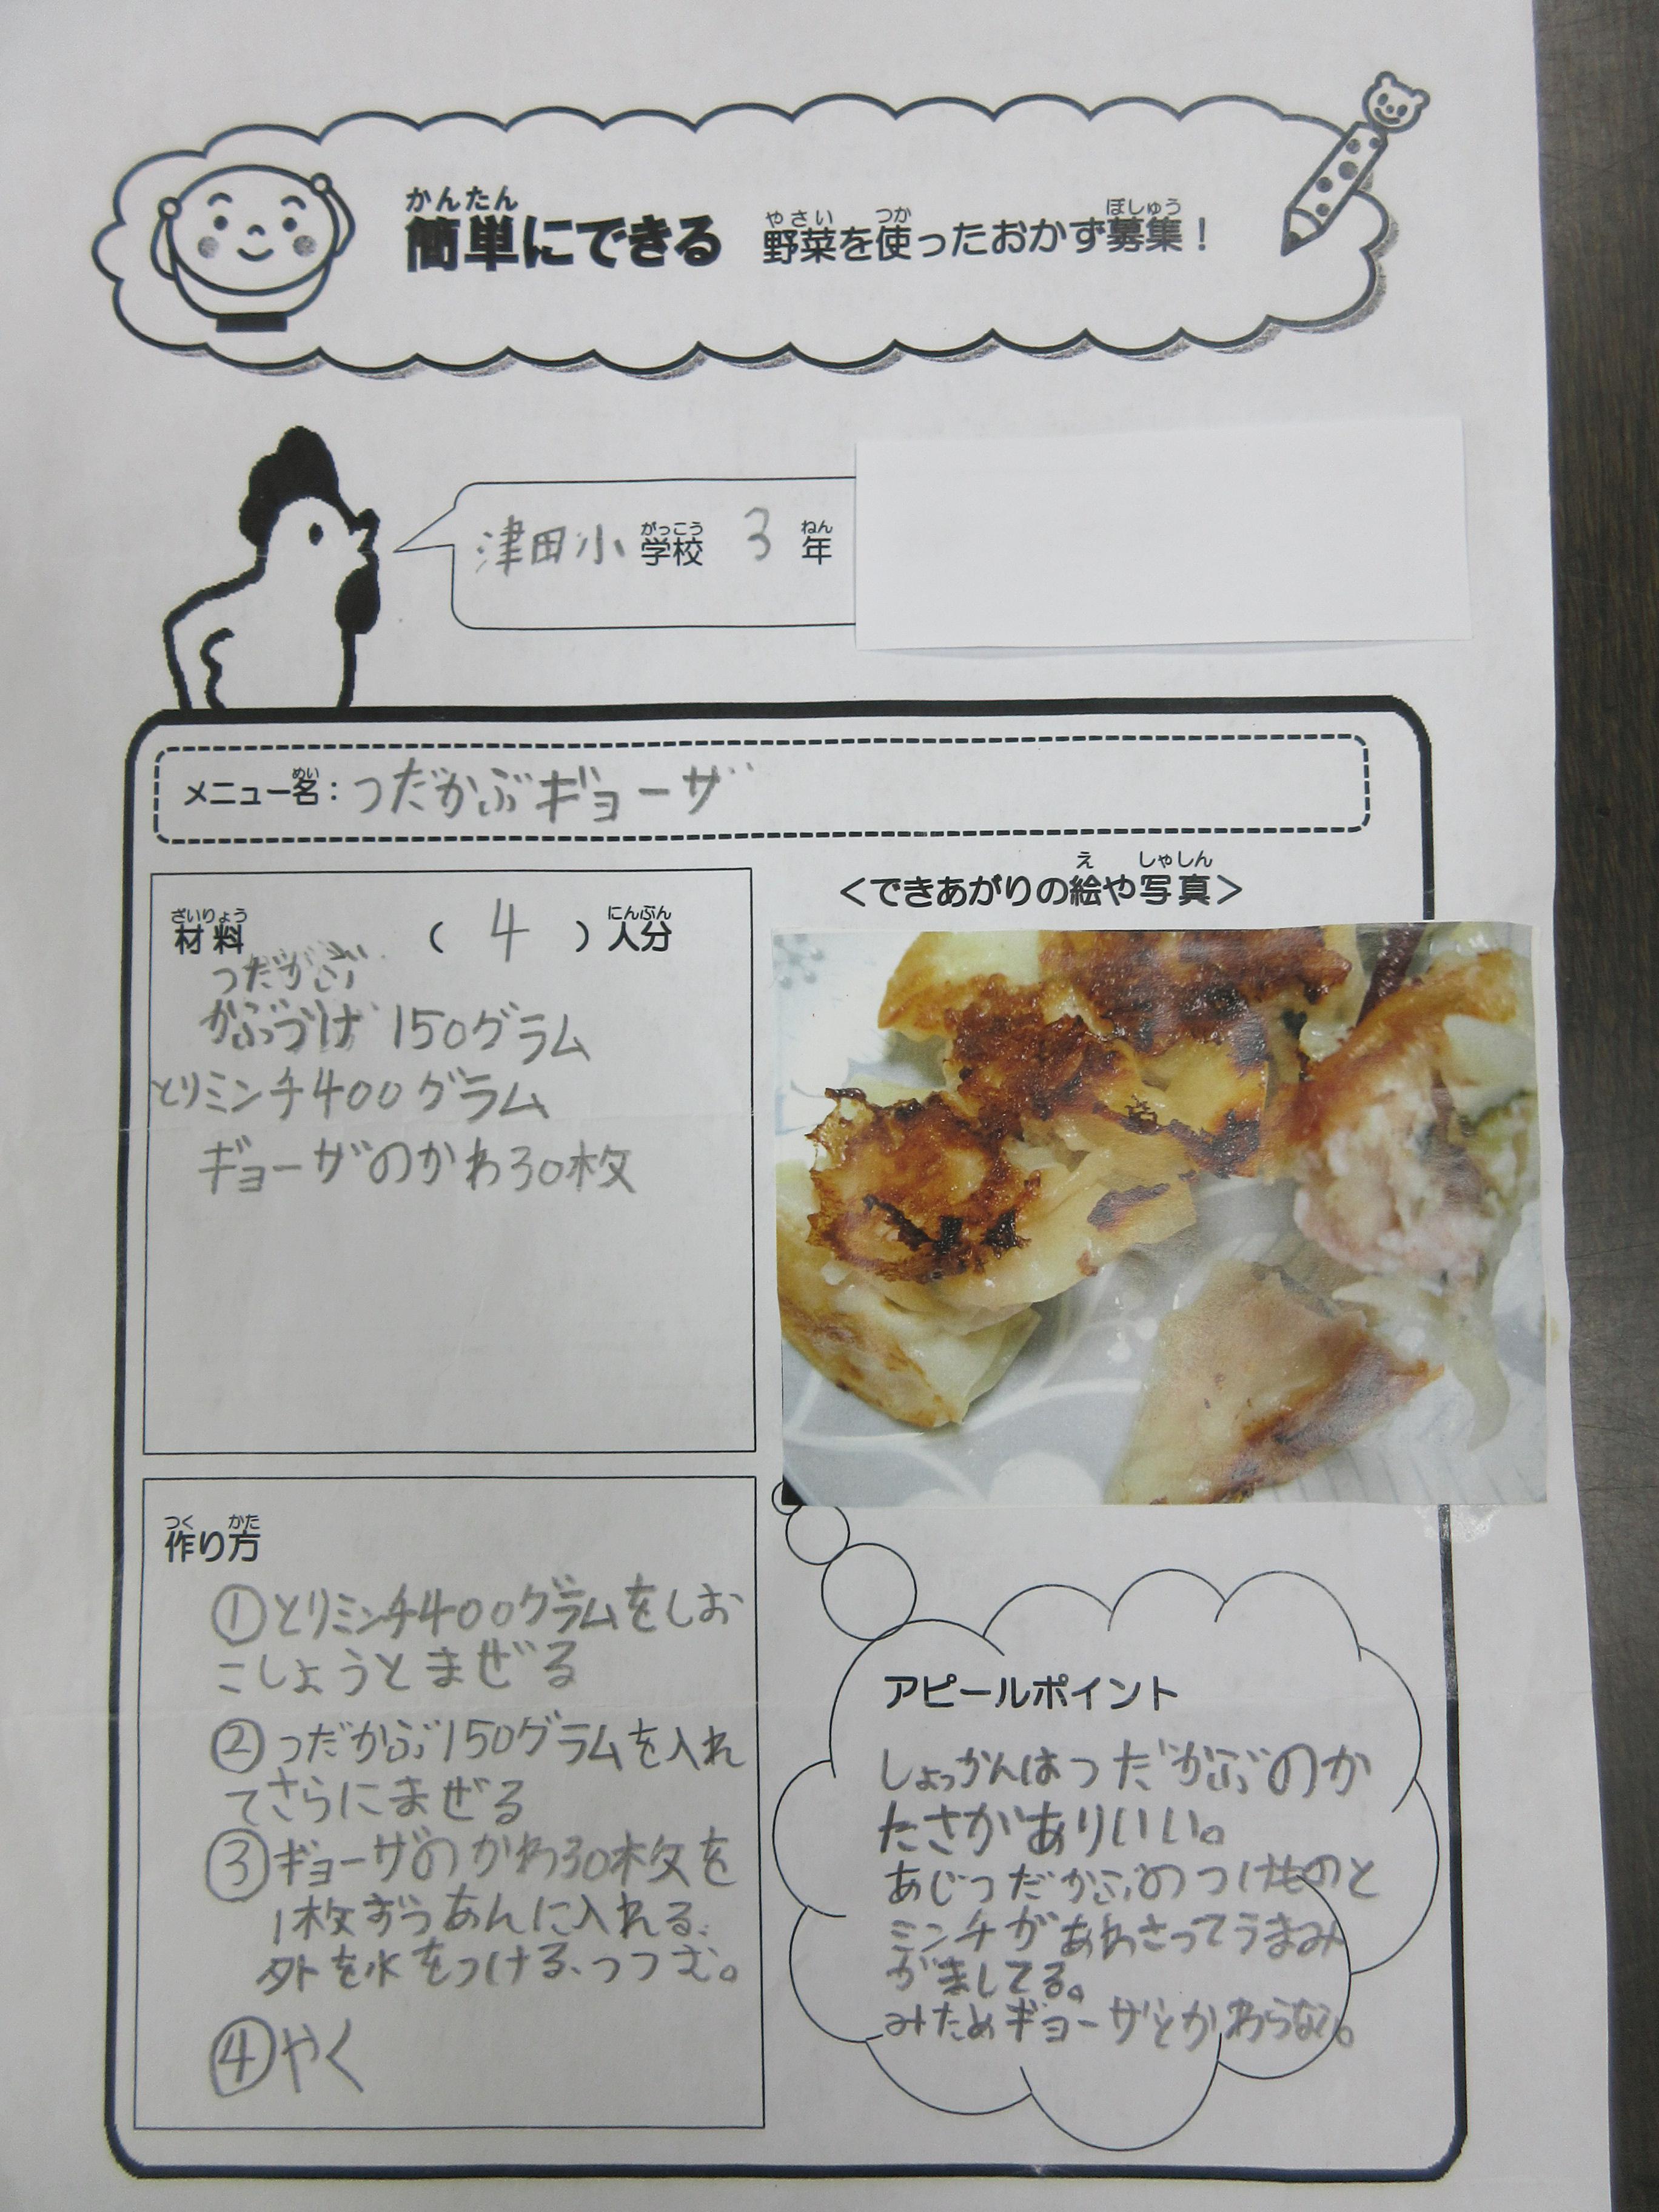 かんたん
簡単にできる
やさい つか ぼしゅう
野菜を使ったおかず募集！
がっこう ねん
津田小学校 3 年
めい
メニュー名：つだかぶギョーザ
ざいりょう にんぶん
材料 （ 4 ）人分
つだかぶ
かぶづけ 150グラム
とりミンチ400グラム
ギョーザのかわ30枚
え しゃしん
＜できあがりの絵や写真＞
つく かた
作り方
①とりミンチ400グラムをしお
こしょうとまぜる
②つだかぶ150グラムを入れ
てさらにまぜる
③ギョーザのかわ30枚を
1枚ずつあんに入れる、
外を水をつける、つつむ。
④やく
アピールポイント
しょっかんはつだかぶのか
たさがありいい。
あじつだかぶのつけものと
ミンチがあわさってうまみ
がましてる。
みためギョーザとかわらない。